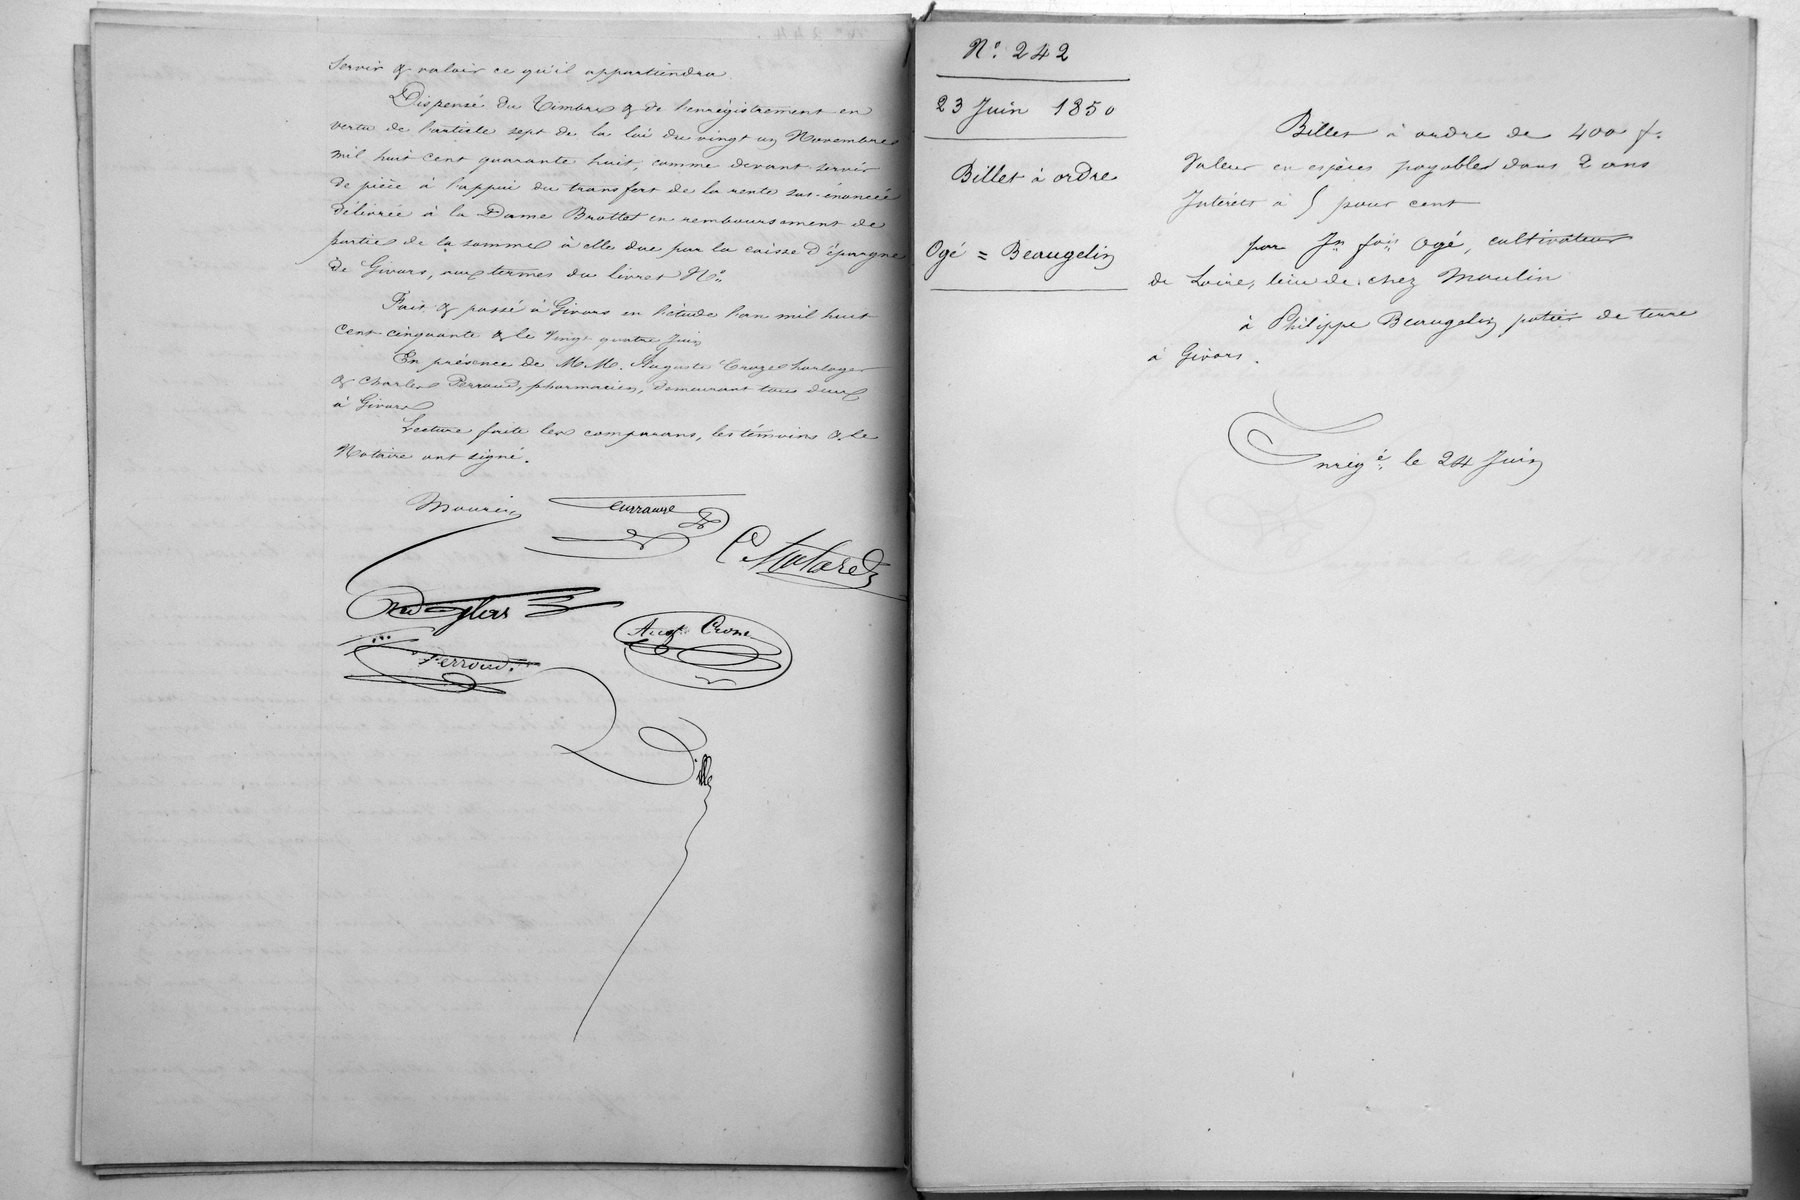 servir & valoir ce qu'il appartiendra.
Dispensé du Timbre & de l'enrégistrement en
vertu de l'article sept de la loi du vingt un Novembre
mil huit cent quarante huit, comme devant servir
de pièce à l'appui du transfert de la rente sus-énoncée
délivrée à la Dame Brottet en remboursement de
partie de la somme à elle due par la caisse d'épargne
de Givors, aux termes du livret N°.
Fait & passé à Givors en l'étude l'an mil huit
cent cinquante & le vingt quatre Juin
En présence de M.M. Auguste Croze horloger
& Charles Perroud, pharmacien, demeurant tous deux
à Givors
Lecture faite les comparans, les témoins & le
Notaire ont signé.
Mourin
Aug.te Croze
Perroud.
N°. 242
23 Juin 1850
Billet à ordre
Ogé = Beaugelin
Billet à ordre de 400 f.
Valeur en espèces payables dans 2 ans
Intérêts à 5 pour cent
par Jn fois Ogé, cultivateur
de Loire, lieu de chez Moulin
à Philippe Beaugelin, potier de terre
à Givors.
Enrig.é le 24 Juin